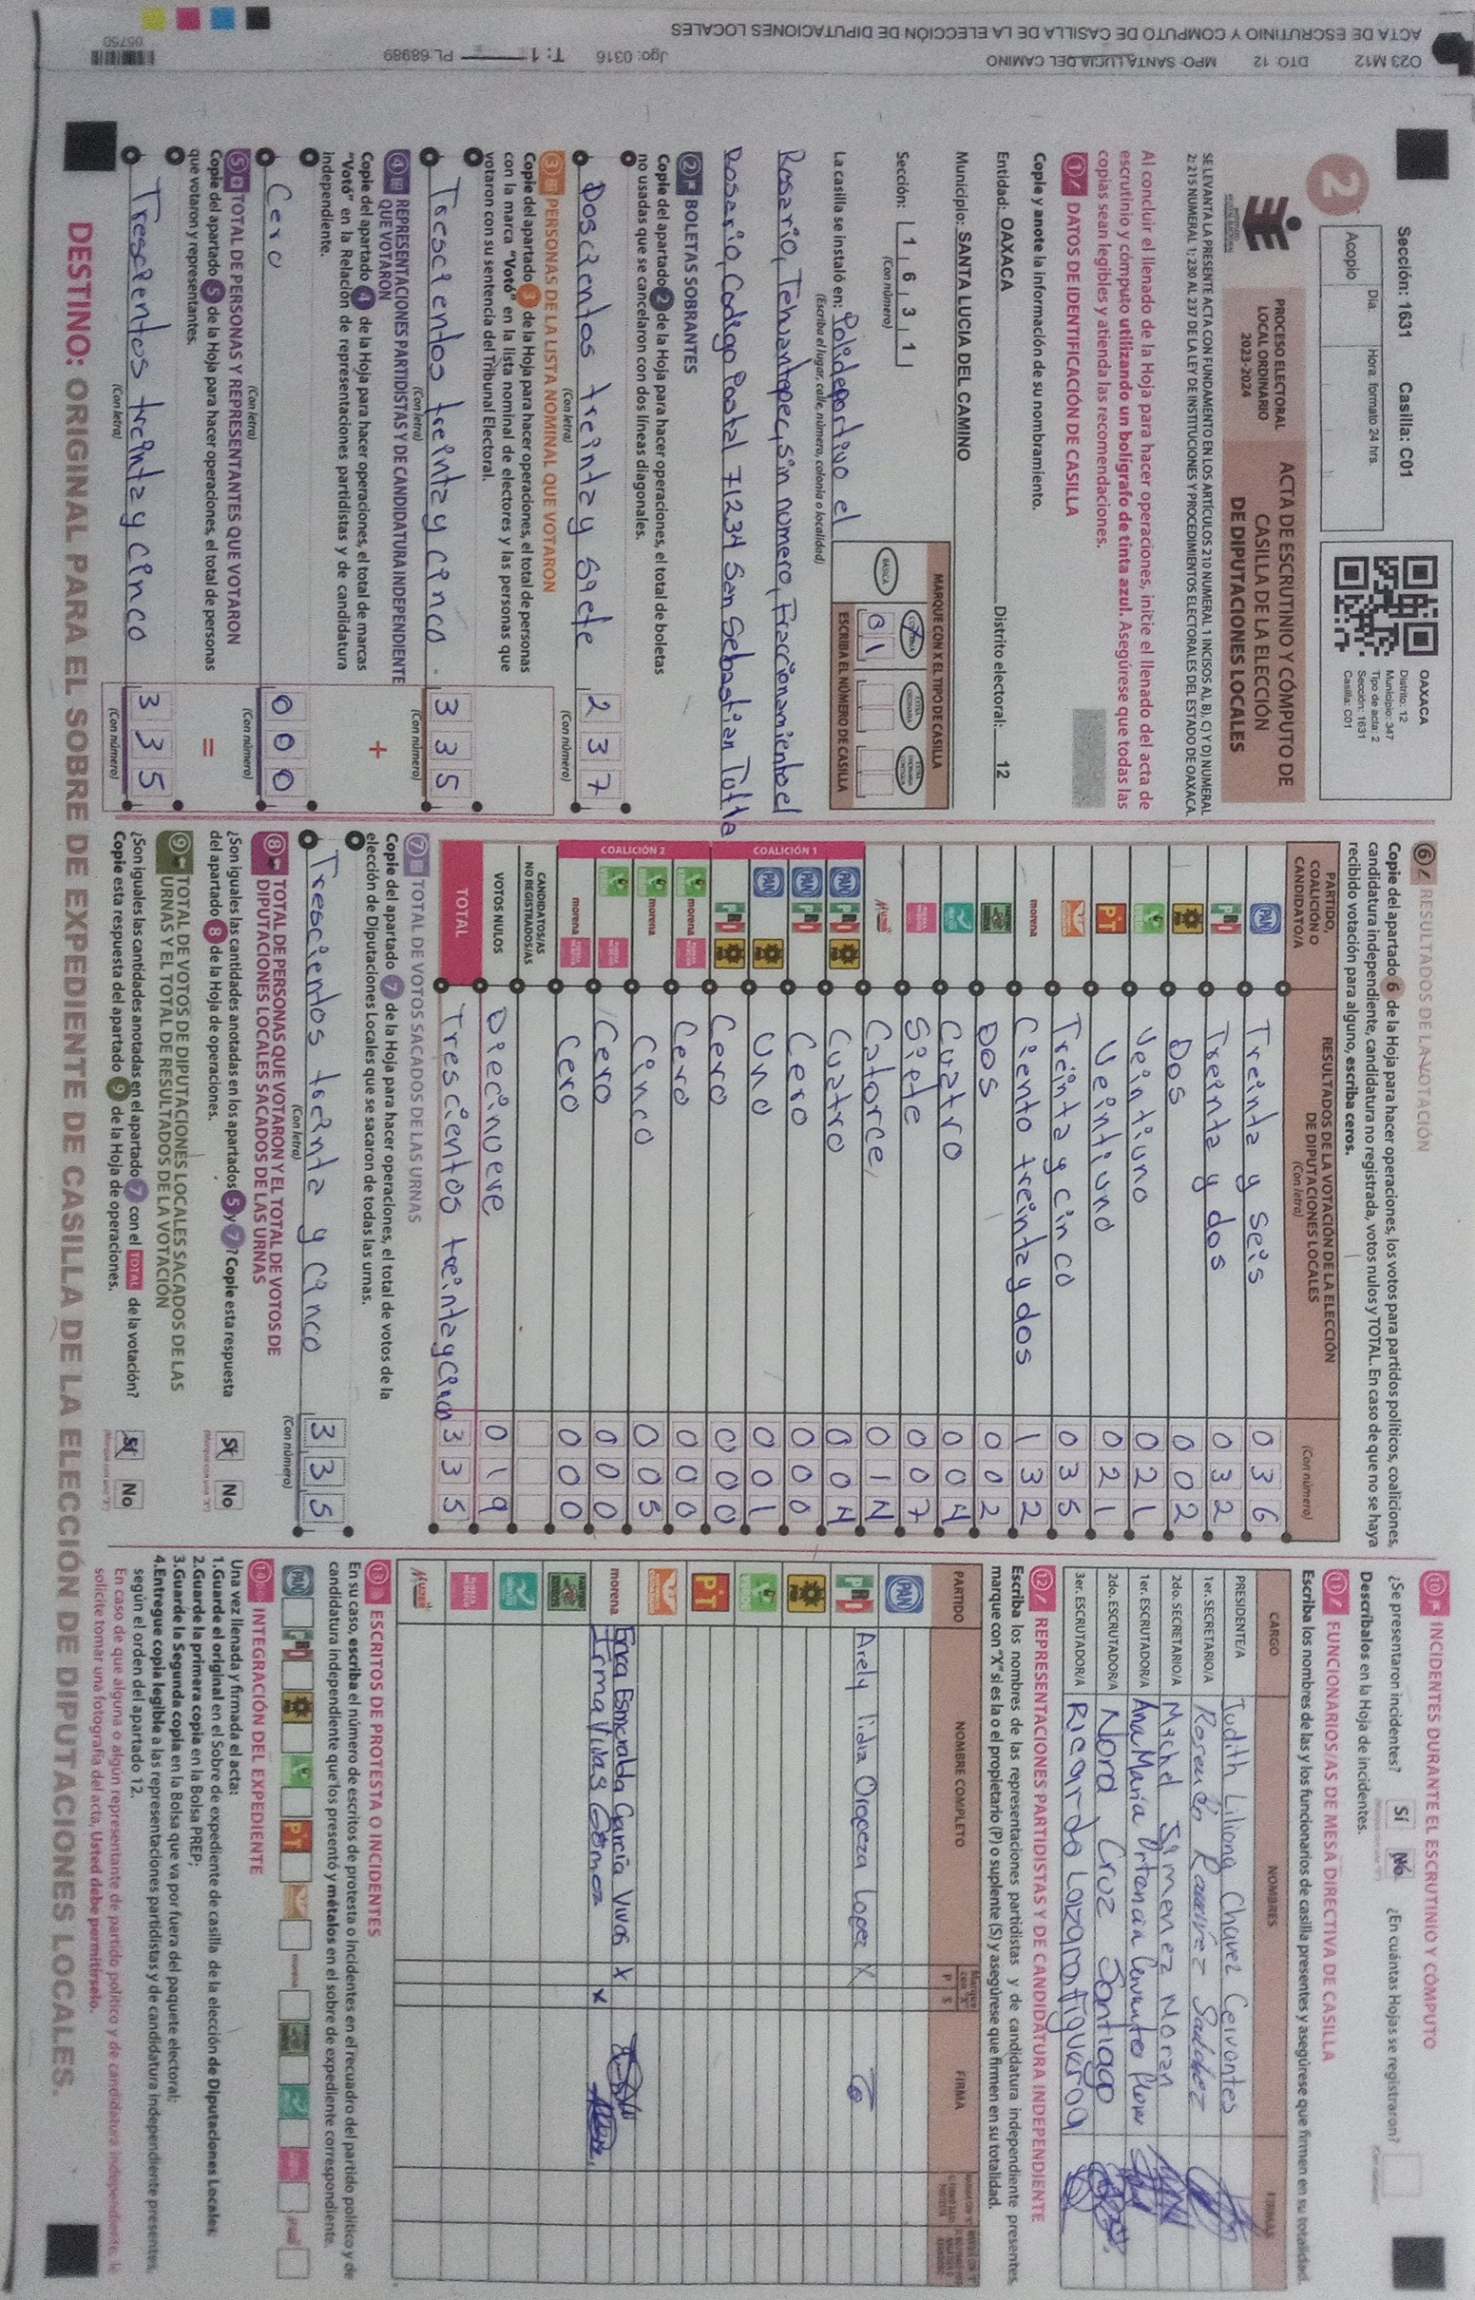 Sección: 1631 Casilla: C01
2
Día: Hora: formato 24 hrs.
Acopio
OAXACA
Distrito: 12
Municipio: 347
Tipo de acta: 2
Sección: 1631
Casilla: C01
PROCESO ELECTORAL
LOCAL ORDINARIO
2023-2024
ACTA DE ESCRUTINIO Y CÓMPUTO DE
CASILLA DE LA ELECCIÓN
DE DIPUTACIONES LOCALES
SE LEVANTA LA PRESENTE ACTA CON FUNDAMENTO EN LOS ARTÍCULOS 210 NUMERAL 1 INCISOS A), B), C) Y D) NUMERAL
2; 215 NUMERAL 1; 230 AL 237 DE LA LEY DE INSTITUCIONES Y PROCEDIMIENTOS ELECTORALES DEL ESTADO DE OAXACA.
Al concluir el llenado de la Hoja para hacer operaciones, inicie el llenado del acta de
escrutinio y cómputo utilizando un bolígrafo de tinta azul. Asegúrese que todas las
copias sean legibles y atienda las recomendaciones.
1 DATOS DE IDENTIFICACIÓN DE CASILLA
Copie y anote la información de su nombramiento.
Entidad: OAXACA Distrito electoral: 12
Municipio: SANTA LUCIA DEL CAMINO
Sección: 1 6 3 1
(Con número)
MARQUE CON X EL TIPO DE CASILLA
BÁSICA
01
ESCRIBA EL NÚMERO DE CASILLA
La casilla se instaló en: Polideportivo el
(Escriba el lugar, calle, número, colonia o localidad)
Rosario, Tehuantepec, sin numero, Fraccionamiento el
Rosario, Codigo Postal 71234 San Sebastian Tutla
2 BOLETAS SOBRANTES
Copie del apartado 2 de la Hoja para hacer operaciones, el total de boletas
no usadas que se cancelaron con dos líneas diagonales.
Doscientos treinta y siete 237
(Con letra) (Con número)
3 PERSONAS DE LA LISTA NOMINAL QUE VOTARON
Copie del apartado 3 de la Hoja para hacer operaciones, el total de personas
con la marca "Votó" en la lista nominal de electores y las personas que
votaron con su sentencia del Tribunal Electoral.
Trescientos treinta y cinco. 335
(Con letra) (Con número)
4 REPRESENTACIONES PARTIDISTAS Y DE CANDIDATURA INDEPENDIENTE
QUE VOTARON
Copie del apartado 4 de la Hoja para hacer operaciones, el total de marcas
"Votó" en la Relación de representaciones partidistas y de candidatura
independiente.
+
Cero 000
(Con letra) (Con número)
5 TOTAL DE PERSONAS Y REPRESENTANTES QUE VOTARON
Copie del apartado 5 de la Hoja para hacer operaciones, el total de personas
que votaron y representantes.
=
Trescientos treinta y cinco 335
(Con letra) (Con número)
6 RESULTADOS DE LA VOTACIÓN
Copie del apartado 6 de la Hoja para hacer operaciones, los votos para partidos políticos, coaliciones,
candidatura independiente, candidatura no registrada, votos nulos y TOTAL. En caso de que no se haya
recibido votación para alguno, escriba ceros.
PARTIDO,
COALICIÓN O
CANDIDATO/A
RESULTADOS DE LA VOTACIÓN DE LA ELECCIÓN
DE DIPUTACIONES LOCALES
(Con letra)
(Con número)
PAN Treinta y seis 036
PRI Treinta y dos 032
Dos 002
Veintiuno 021
PT Veintiuno 021
Treinta y cinco 035
morena Ciento treinta y dos 132
Dos 002
Cuatro 004
Siete 007
Catorce 014
COALICIÓN 1
PAN PRI Cuatro 004
PAN PRI Cero 000
PAN Uno 001
PRI Cero 000
COALICIÓN 2
morena Cero 000
morena Cinco 005
Cero 000
morena Cero 000
CANDIDATOS/AS
NO REGISTRADOS/AS
VOTOS NULOS Diecinueve 019
TOTAL Trescientos treinta y cinco 335
7 TOTAL DE VOTOS SACADOS DE LAS URNAS
Copie del apartado 7 de la Hoja para hacer operaciones, el total de votos de la
elección de Diputaciones Locales que se sacaron de todas las urnas.
Trescientos treinta y cinco 335
(Con letra) (Con número)
8 TOTAL DE PERSONAS QUE VOTARON Y EL TOTAL DE VOTOS DE
DIPUTACIONES LOCALES SACADOS DE LAS URNAS
¿Son iguales las cantidades anotadas en los apartados 5 y 7? Copie esta respuesta
del apartado 8 de la Hoja de operaciones.
Sí No
9 TOTAL DE VOTOS DE DIPUTACIONES LOCALES SACADOS DE LAS
URNAS Y EL TOTAL DE RESULTADOS DE LA VOTACIÓN
¿Son iguales las cantidades anotadas en el apartado 7 con el TOTAL de la votación?
Copie esta respuesta del apartado 9 de la Hoja de operaciones.
Sí No
10 INCIDENTES DURANTE EL ESCRUTINIO Y CÓMPUTO
¿Se presentaron incidentes? Sí No ¿En cuántas Hojas se registraron?
Descríbalos en la Hoja de incidentes.
11 FUNCIONARIOS/AS DE MESA DIRECTIVA DE CASILLA
Escriba los nombres de las y los funcionarios de casilla presentes y asegúrese que firmen en su totalidad.
CARGO NOMBRES FIRMAS
PRESIDENTE/A Judith Liliana Chavez Cervantes
1er. SECRETARIO/A Rosendo Ramírez Sanchez
2do. SECRETARIO/A Michel Simenez Moran
1er. ESCRUTADOR/A Ana María
2do. ESCRUTADOR/A Nora Cruz Santiago
3er. ESCRUTADOR/A Ricardo
12 REPRESENTACIONES PARTIDISTAS Y DE CANDIDATURA INDEPENDIENTE
Escriba los nombres de las representaciones partidistas y de candidatura independiente presentes,
marque con "X" si es la o el propietario (P) o suplente (S) y asegúrese que firmen en su totalidad.
PARTIDO NOMBRE COMPLETO P S FIRMA
PAN
PRI Arely lidia Oropeza Lopez X
PT
morena Erica Esmeralda García Vivas X
Irma Vivas Gómez X
13 ESCRITOS DE PROTESTA O INCIDENTES
En su caso, escriba el número de escritos de protesta o incidentes en el recuadro del partido político y de
candidatura independiente que los presentó y métalos en el sobre de expediente correspondiente.
PAN PRI PT
14 INTEGRACIÓN DEL EXPEDIENTE
Una vez llenada y firmada el acta:
1.Guarde el original en el Sobre de expediente de casilla de la elección de Diputaciones Locales;
2.Guarde la primera copia en la Bolsa PREP;
3.Guarde la Segunda copia en la Bolsa que va por fuera del paquete electoral;
4.Entregue copia legible a las representaciones partidistas y de candidatura independiente presentes,
según el orden del apartado 12.
En caso de que alguna o algún representante de partido político y de candidatura independiente, le
solicite tomar una fotografía del acta, Usted debe permitírselo.
DESTINO: ORIGINAL PARA EL SOBRE DE EXPEDIENTE DE CASILLA DE LA ELECCIÓN DE DIPUTACIONES LOCALES.
ACTA DE ESCRUTINIO Y COMPUTO DE CASILLA DE LA ELECCIÓN DE DIPUTACIONES LOCALES
O23 M12 DTO: 12 MPO: SANTA LUCIA DEL CAMINO Jgo: 0316 T: 1 PL 68989
05750